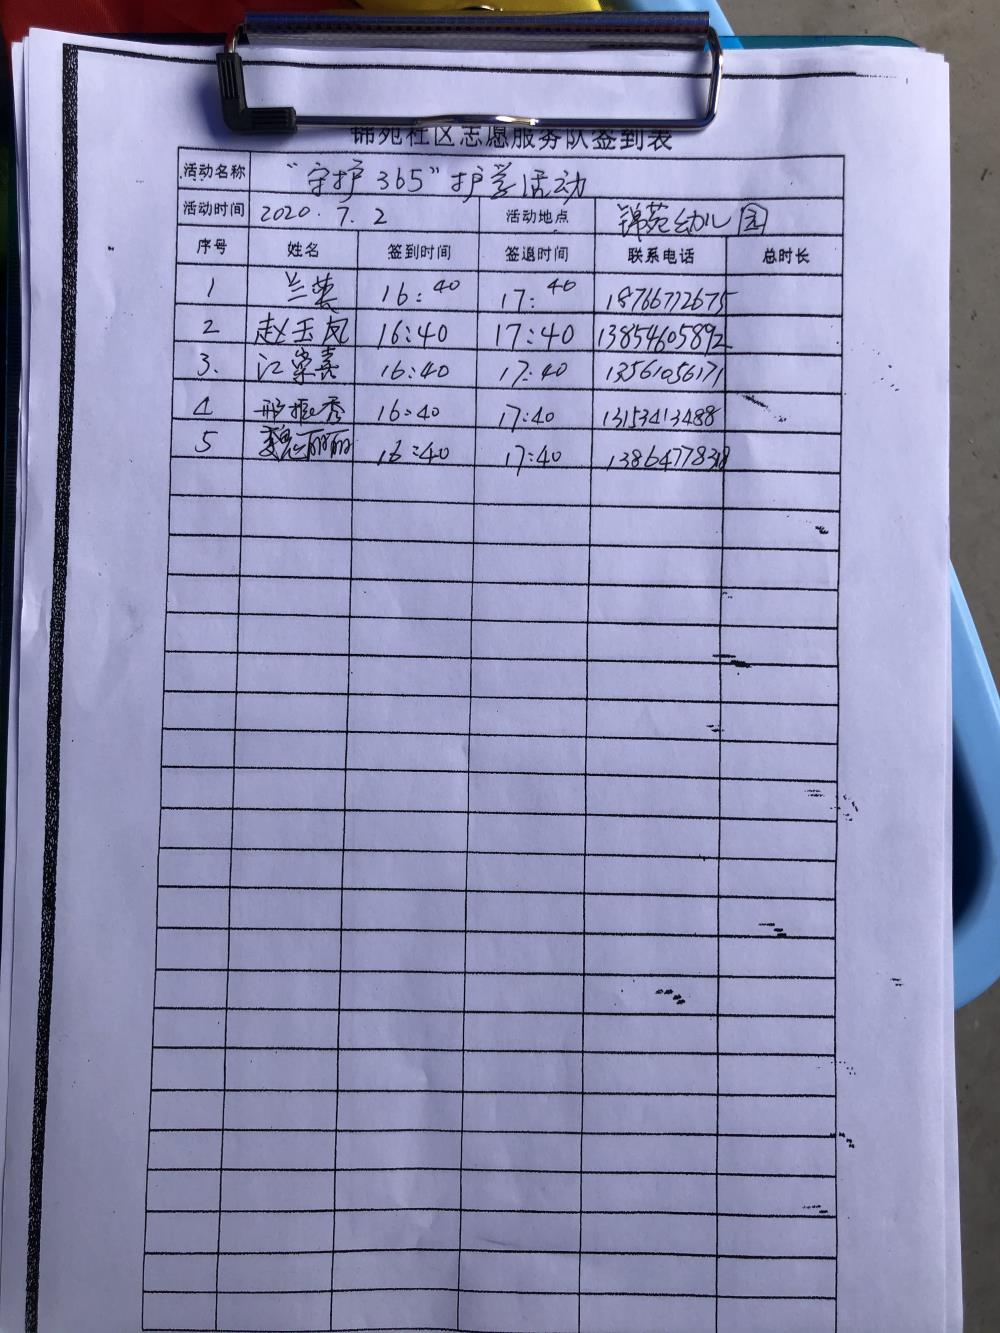 锦苑社区志愿服务队签到表
活动名称 “守护365”护学活动
活动时间 2020.7.2 活动地点 锦苑幼儿园
序号 姓名 签到时间 签退时间 联系电话 总时长
1 兰英 16:40 17:40 18766772675
2 赵玉凤 16:40 17:40 13854605892
3. 江崇喜 16:40 17:40 13561056171
4 邢振秀 16:40 17:40 13153413488
5 魏丽丽 16:40 17:40